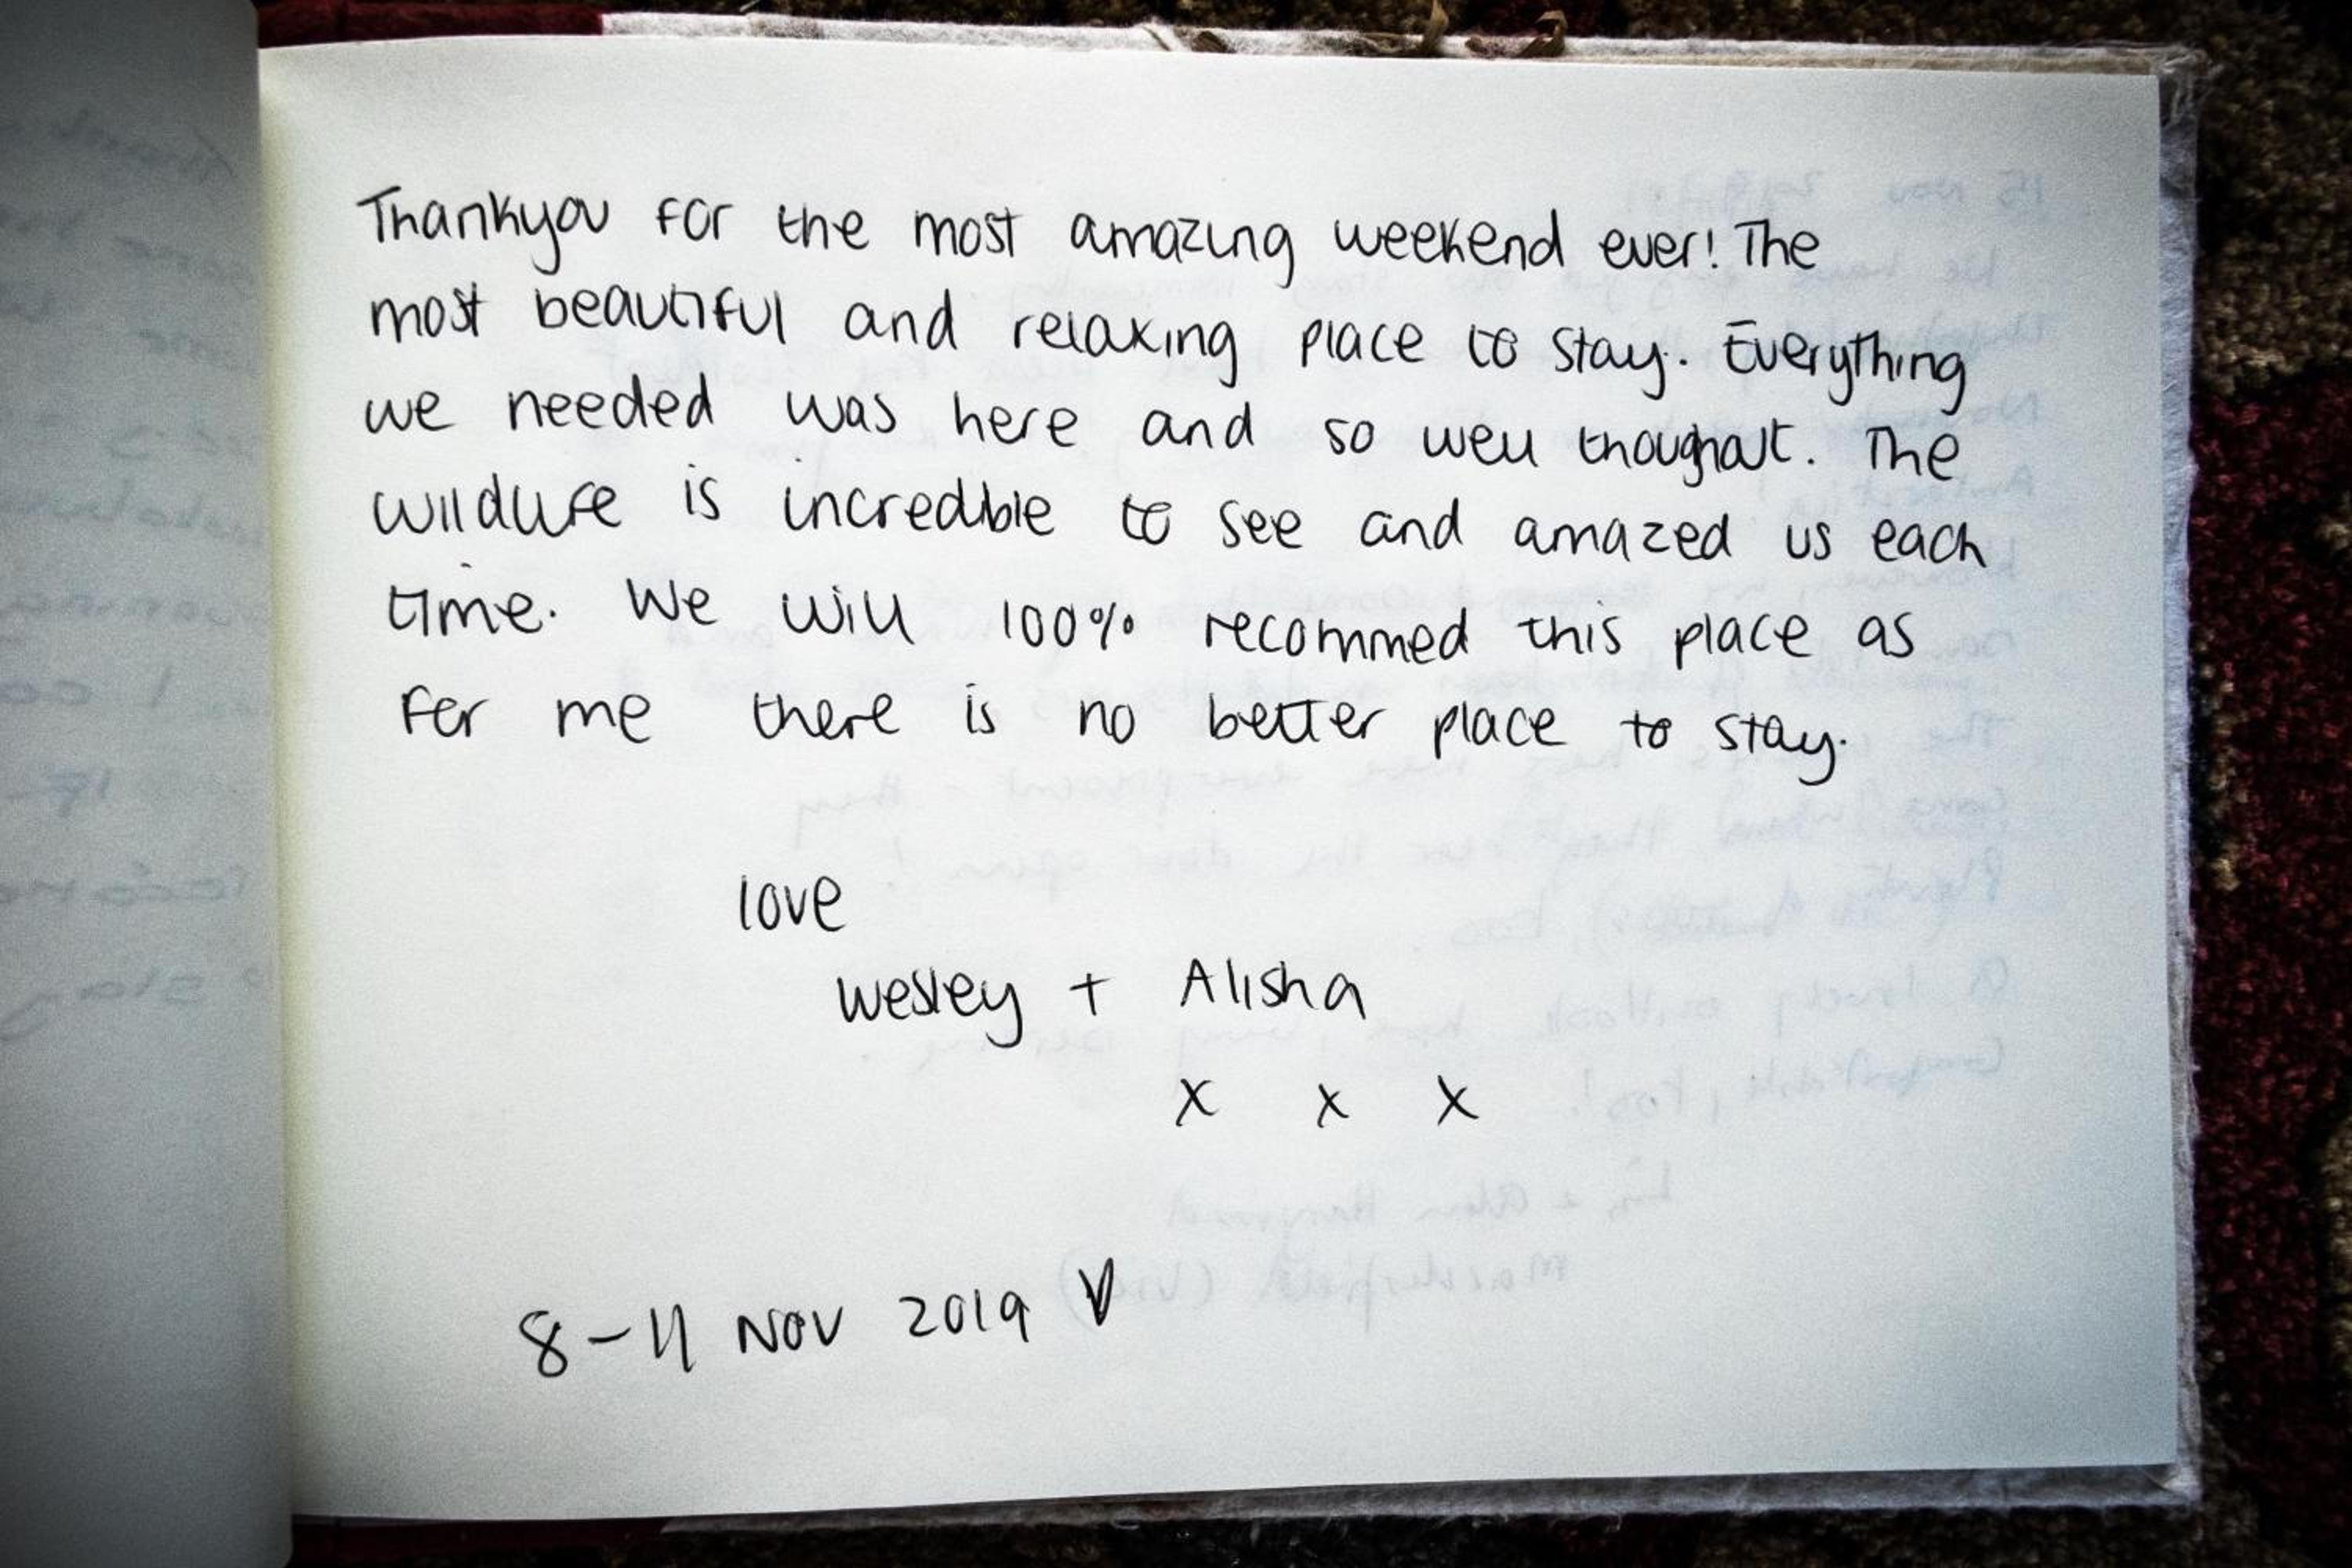 Thankyou for the most amazing weekend ever! The
most beautiful and relaxing place to stay. Everything
we needed was here and so well thought. The
wildlife is incredible to see and amazed us each
time. We will 100% recommed this place as
for me there is no better place to stay.
love
wesley + Alisha
x x x
8-11 NOV 2019